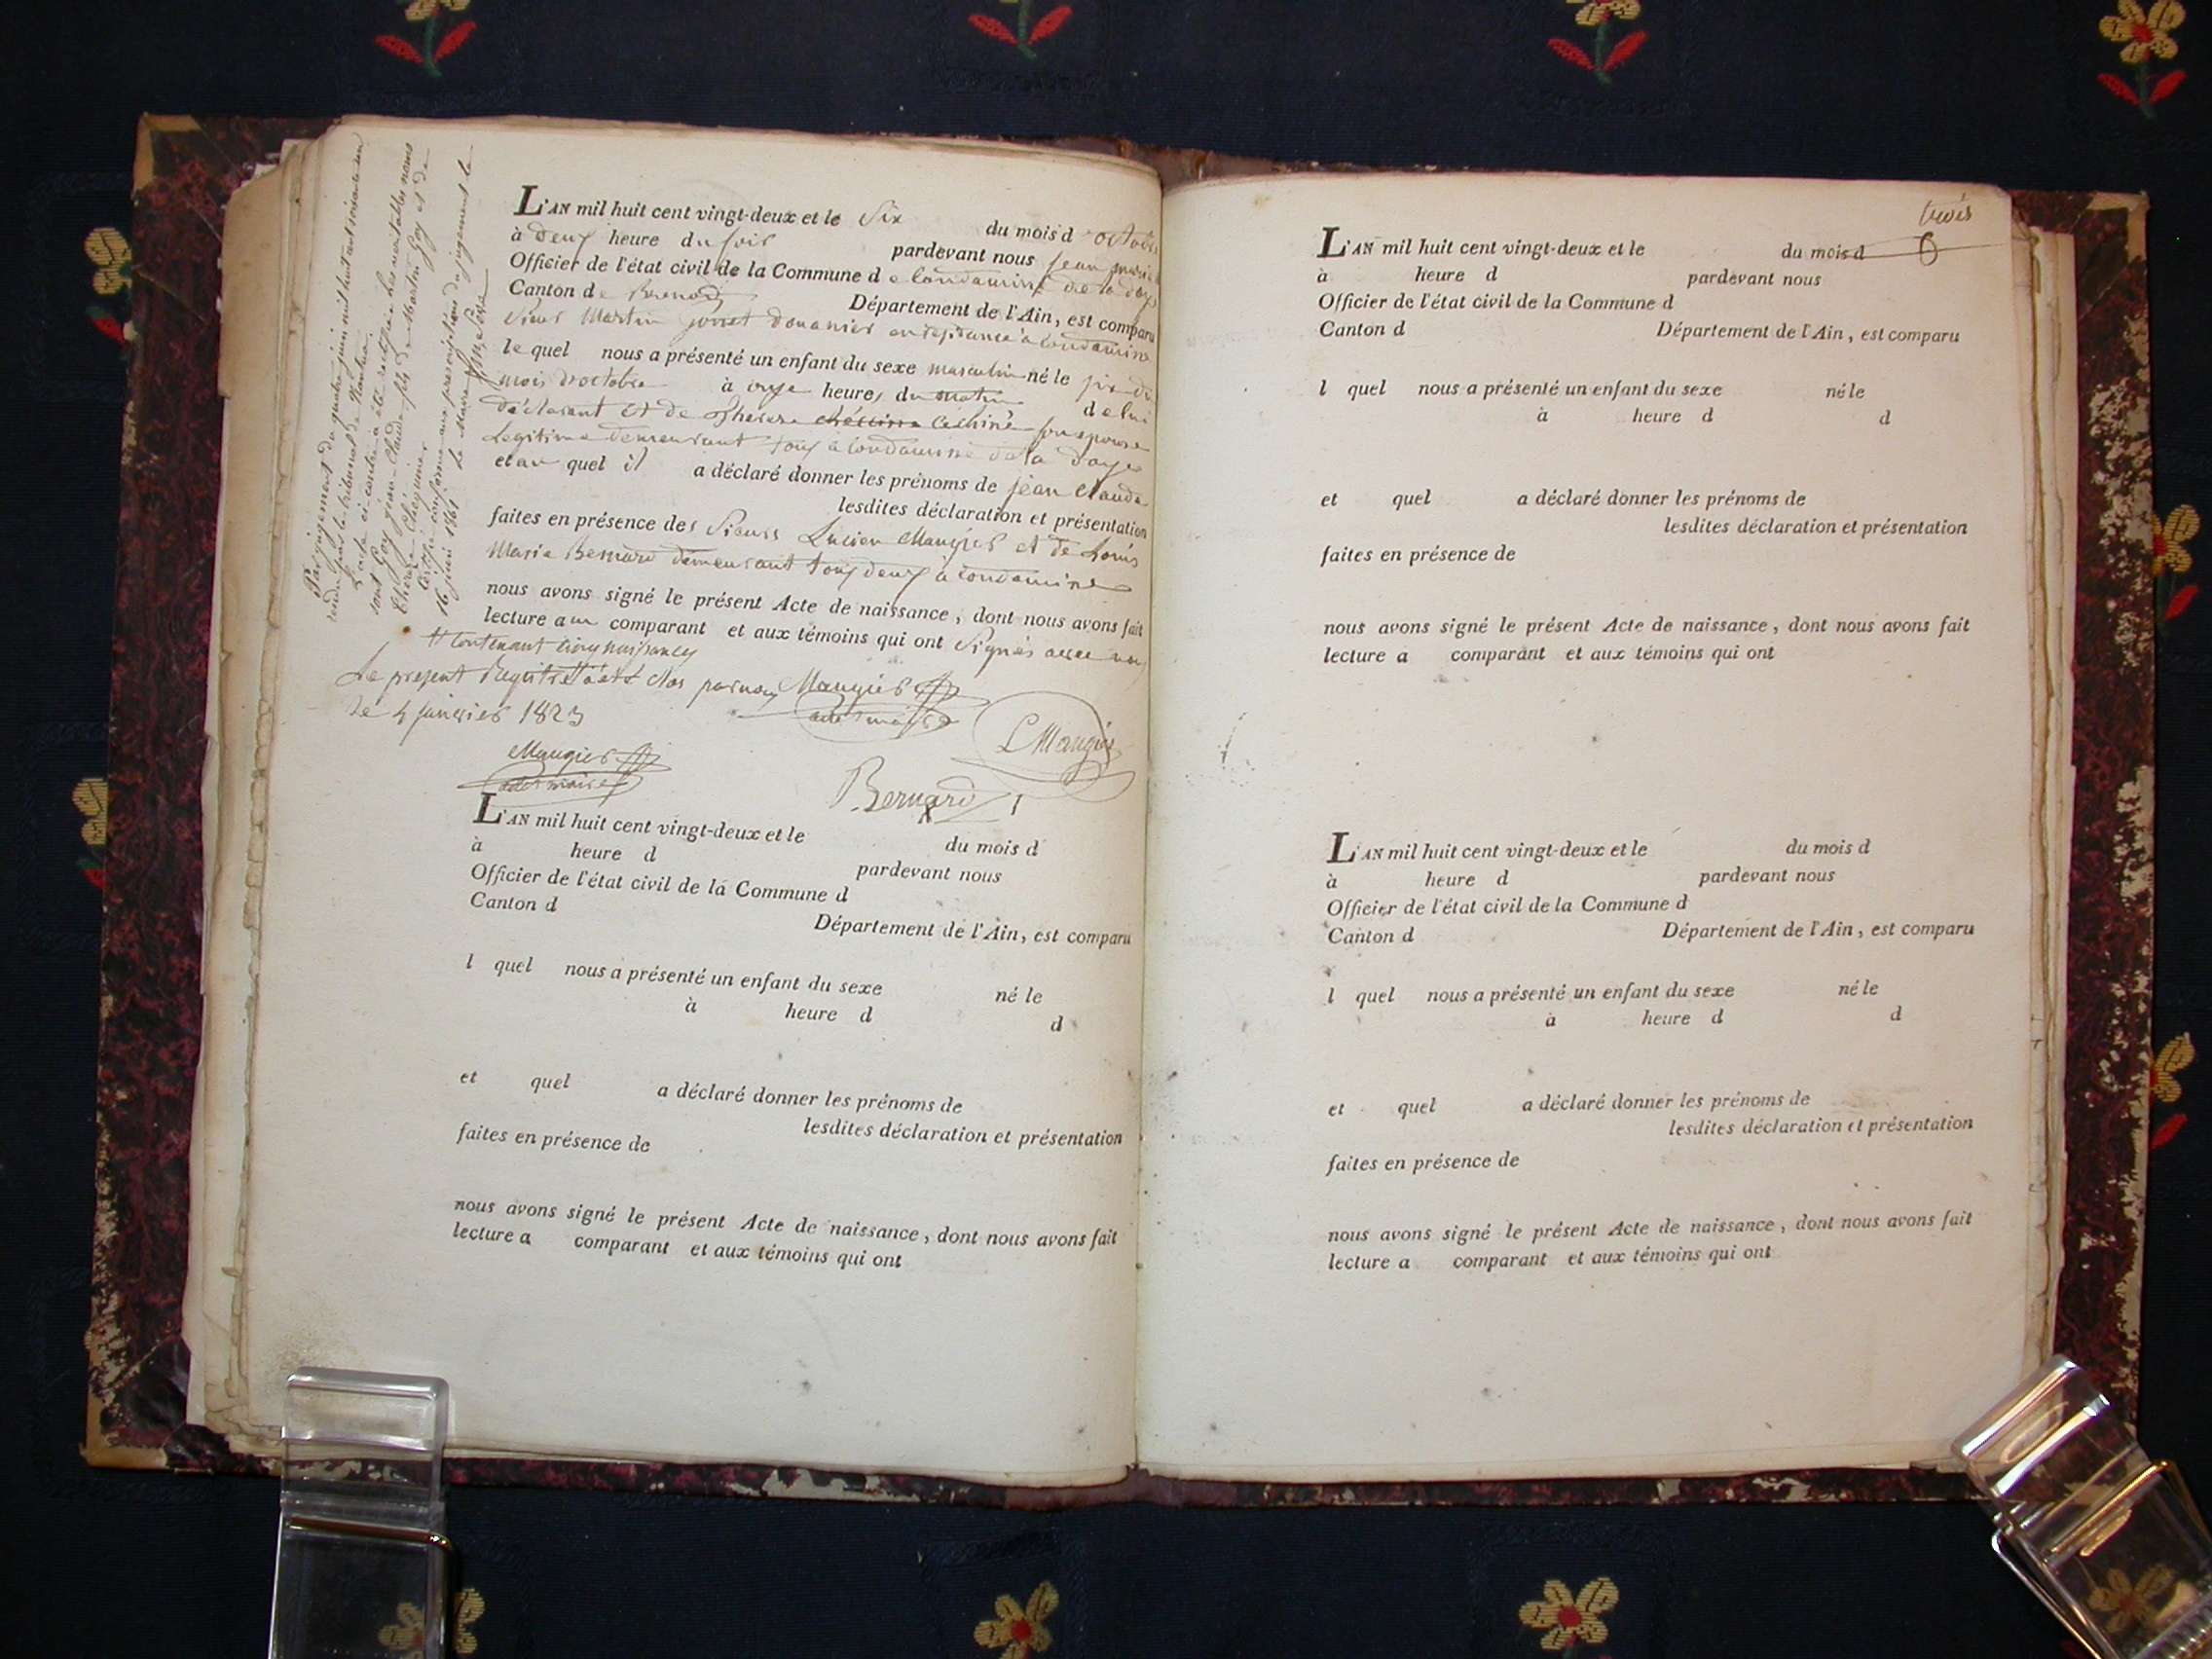 Par jugement du quatre juin mil huit cent soixante un
rendu par le tribunal de Nantua
L'acte ci-contre a été rectifié les véritables noms
sont Goy Jean-Claude fils de Martin Goy et de
Thérèse
certifié conforme aux prescriptions du jugement le
16 juin 1861 Le Maire
L'AN mil huit cent vingt-deux et le Six du mois d'octobre
à deux heure du soir pardevant nous jean marie
Officier de l'état civil de la Commune de Condamine de la doye
Canton de Brenod Département de l'Ain, est comparu
Sieur Martin douanier en residance à Condamine
le quel nous a présenté un enfant du sexe masculin né le six du
mois d'octobre à onze heures du matin de lui
déclarant et de Therese son epouse
Legitime demeurant tous à Condamine de la doye
et au quel il a déclaré donner les prénoms de jean Claude
lesdites déclaration et présentation
faites en présence des Sieurs Lucien Maugier et de Louis
Marie Bernard demeurant tous deux à Condamine
nous avons signé le présent Acte de naissance, dont nous avons fait
lecture au comparant et aux témoins qui ont Signés avec nous
contenant cinq naissances
Le present Registre a été Clos par nous Maugier
le 4 janvier 1823 adt maire
L Maugier
Maugier
adt maire
Bernard
L'AN mil huit cent vingt-deux et le du mois d
à heure d pardevant nous
Officier de l'état civil de la Commune d
Canton d Département de l'Ain, est comparu
l quel nous a présenté un enfant du sexe né le
à heure d d
et quel a déclaré donner les prénoms de
lesdites déclaration et présentation
faites en présence de
nous avons signé le présent Acte de naissance, dont nous avons fait
lecture a comparant et aux témoins qui ont
trois
L'AN mil huit cent vingt-deux et le du mois d
à heure d pardevant nous
Officier de l'état civil de la Commune d
Canton d Département de l'Ain, est comparu
l quel nous a présenté un enfant du sexe né le
à heure d d
et quel a déclaré donner les prénoms de
lesdites déclaration et présentation
faites en présence de
nous avons signé le présent Acte de naissance, dont nous avons fait
lecture a comparant et aux témoins qui ont
L'AN mil huit cent vingt-deux et le du mois d
à heure d pardevant nous
Officier de l'état civil de la Commune d
Canton d Département de l'Ain, est comparu
l quel nous a présenté un enfant du sexe né le
à heure d d
et quel a déclaré donner les prénoms de
lesdites déclaration et présentation
faites en présence de
nous avons signé le présent Acte de naissance, dont nous avons fait
lecture a comparant et aux témoins qui ont